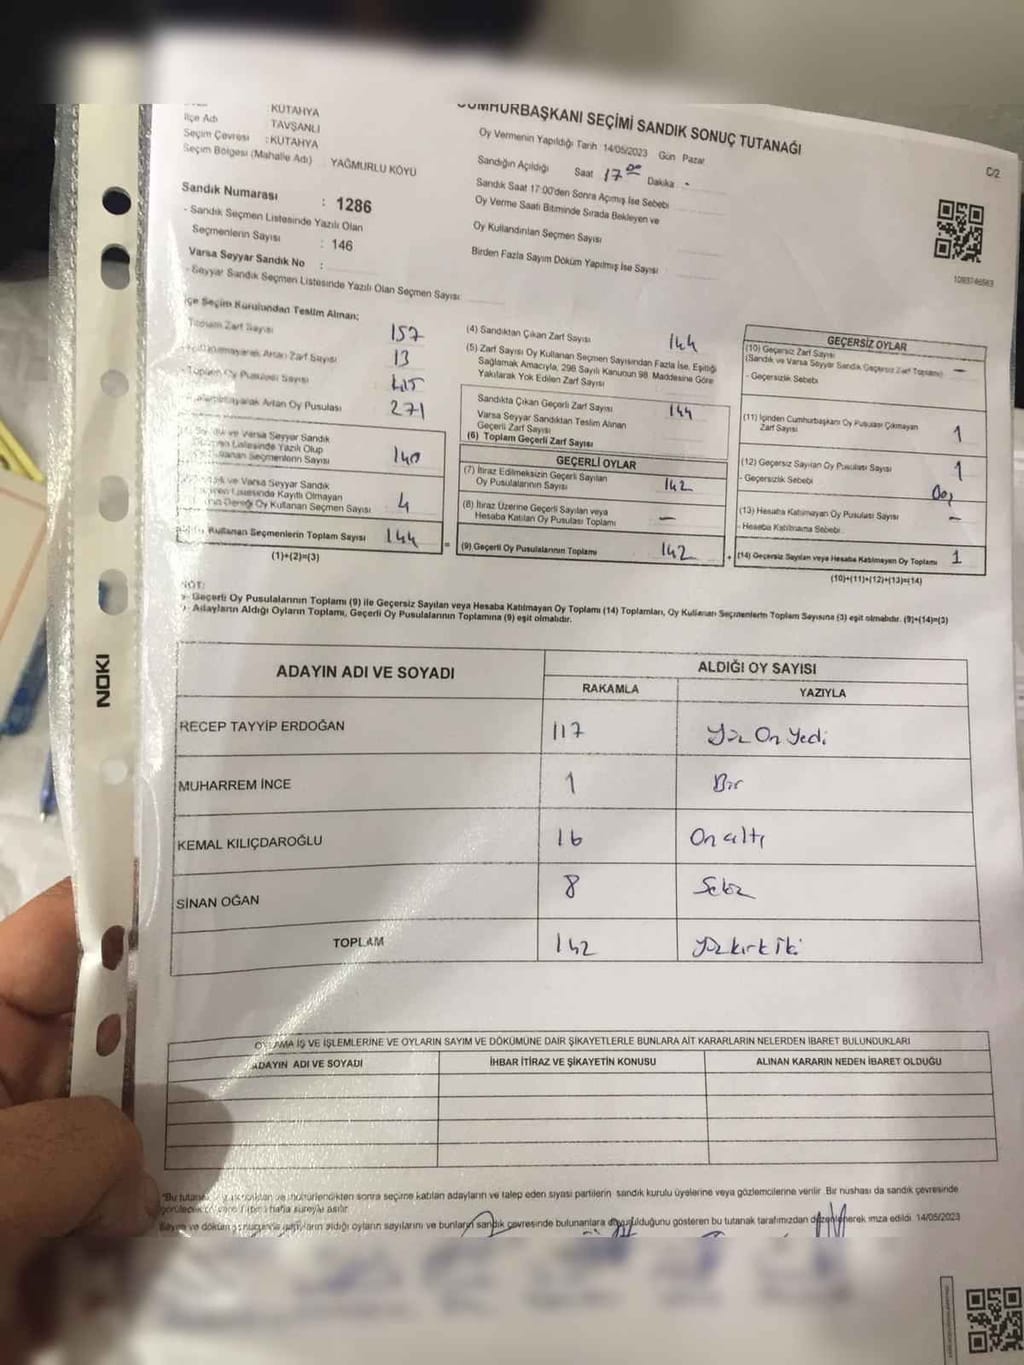 KÜTAHYA
İlçe Adı : TAVŞANLI
Seçim Çevresi : KÜTAHYA
Seçim Bölgesi (Mahalle Adı) : YAĞMURLU KÖYÜ
Sandık Numarası : 1286
- Sandık Seçmen Listesinde Yazılı Olan
Seçmenlerin Sayısı : 146
Varsa Seyyar Sandık No :
- Seyyar Sandık Seçmen Listesinde Yazılı Olan Seçmen Sayısı:
CUMHURBAŞKANI SEÇİMİ SANDIK SONUÇ TUTANAĞI
C/2
Oy Vermenin Yapıldığı Tarih 14/05/2023 Gün Pazar
Sandığın Açıldığı Saat 17 00 Dakika -
Sandık Saat 17:00'den Sonra Açılmış İse Sebebi
Oy Verme Saati Bitiminde Sırada Bekleyen ve
Oy Kullandırılan Seçmen Sayısı
Birden Fazla Sayım Döküm Yapılmış İse Sayısı
İlçe Seçim Kurulundan Teslim Alınan;
Toplam Zarf Sayısı 157
Artan Zarf Sayısı 13
- Toplam Oy Pusulası Sayısı 415
Artan Oy Pusulası 271
ve Varsa Seyyar Sandık
Listesinde Yazılı Olup
Seçmenlerin Sayısı 140
ve Varsa Seyyar Sandık
Listesinde Kayıtlı Olmayan
Gereği Oy Kullanan Seçmen Sayısı 4
Kullanan Seçmenlerin Toplam Sayısı 144
(1)+(2)=(3)
(4) Sandıktan Çıkan Zarf Sayısı 144
(5) Zarf Sayısı Oy Kullanan Seçmen Sayısından Fazla İse, Eşitliği
Sağlamak Amacıyla, 298 Sayılı Kanunun 98. Maddesine Göre
Yakılarak Yok Edilen Zarf Sayısı
Sandıkta Çıkan Geçerli Zarf Sayısı 144
Varsa Seyyar Sandıktan Teslim Alınan
Geçerli Zarf Sayısı
(6) Toplam Geçerli Zarf Sayısı
GEÇERLİ OYLAR
(7) İtiraz Edilmeksizin Geçerli Sayılan
Oy Pusulalarının Sayısı 142
(8) İtiraz Üzerine Geçerli Sayılan veya
Hesaba Katılan Oy Pusulası Toplamı —
= (9) Geçerli Oy Pusulalarının Toplamı 142
GEÇERSİZ OYLAR
(10) Geçersiz Zarf Sayısı
(Sandık ve Varsa Seyyar Sandık Geçersiz Zarf Toplamı) —
- Geçersizlik Sebebi
(11) İçinden Cumhurbaşkanı Oy Pusulası Çıkmayan
Zarf Sayısı 1
(12) Geçersiz Sayılan Oy Pusulası Sayısı 1
- Geçersizlik Sebebi
(13) Hesaba Katılmayan Oy Pusulası Sayısı —
- Hesaba Katılmama Sebebi
+ (14) Geçersiz Sayılan veya Hesaba Katılmayan Oy Toplamı 1
(10)+(11)+(12)+(13)=(14)
NOT:
- Geçerli Oy Pusulalarının Toplamı (9) ile Geçersiz Sayılan veya Hesaba Katılmayan Oy Toplamı (14) Toplamları, Oy Kullanan Seçmenlerin Toplam Sayısına (3) eşit olmalıdır. (9)+(14)=(3)
- Adayların Aldığı Oyların Toplamı, Geçerli Oy Pusulalarının Toplamına (9) eşit olmalıdır.
ADAYIN ADI VE SOYADI
ALDIĞI OY SAYISI
RAKAMLA YAZIYLA
RECEP TAYYİP ERDOĞAN 117 Yüz On Yedi
MUHARREM İNCE 1 Bir
KEMAL KILIÇDAROĞLU 16 On altı
SİNAN OĞAN 8 Sekiz
TOPLAM 142 Yüzkırk iki
OYLAMA İŞ VE İŞLEMLERİNE VE OYLARIN SAYIM VE DÖKÜMÜNE DAİR ŞİKAYETLERLE BUNLARA AİT KARARLARIN NELERDEN İBARET BULUNDUKLARI
ADAYIN ADI VE SOYADI İHBAR İTİRAZ VE ŞİKAYETİN KONUSU ALINAN KARARIN NEDEN İBARET OLDUĞU
"Bu tutanak sonra seçime katılan adayların ve talep eden siyasi partilerin sandık kurulu üyelerine veya gözlemcilerine verilir. Bir nüshası da sandık çevresinde
hafta süreyle asılır.
Sayım ve döküm aldığı oyların sayılarını ve bunların sandık çevresinde bulunanlara duyurulduğunu gösteren bu tutanak tarafımızdan düzenlenerek imza edildi. 14/05/2023
NOKI